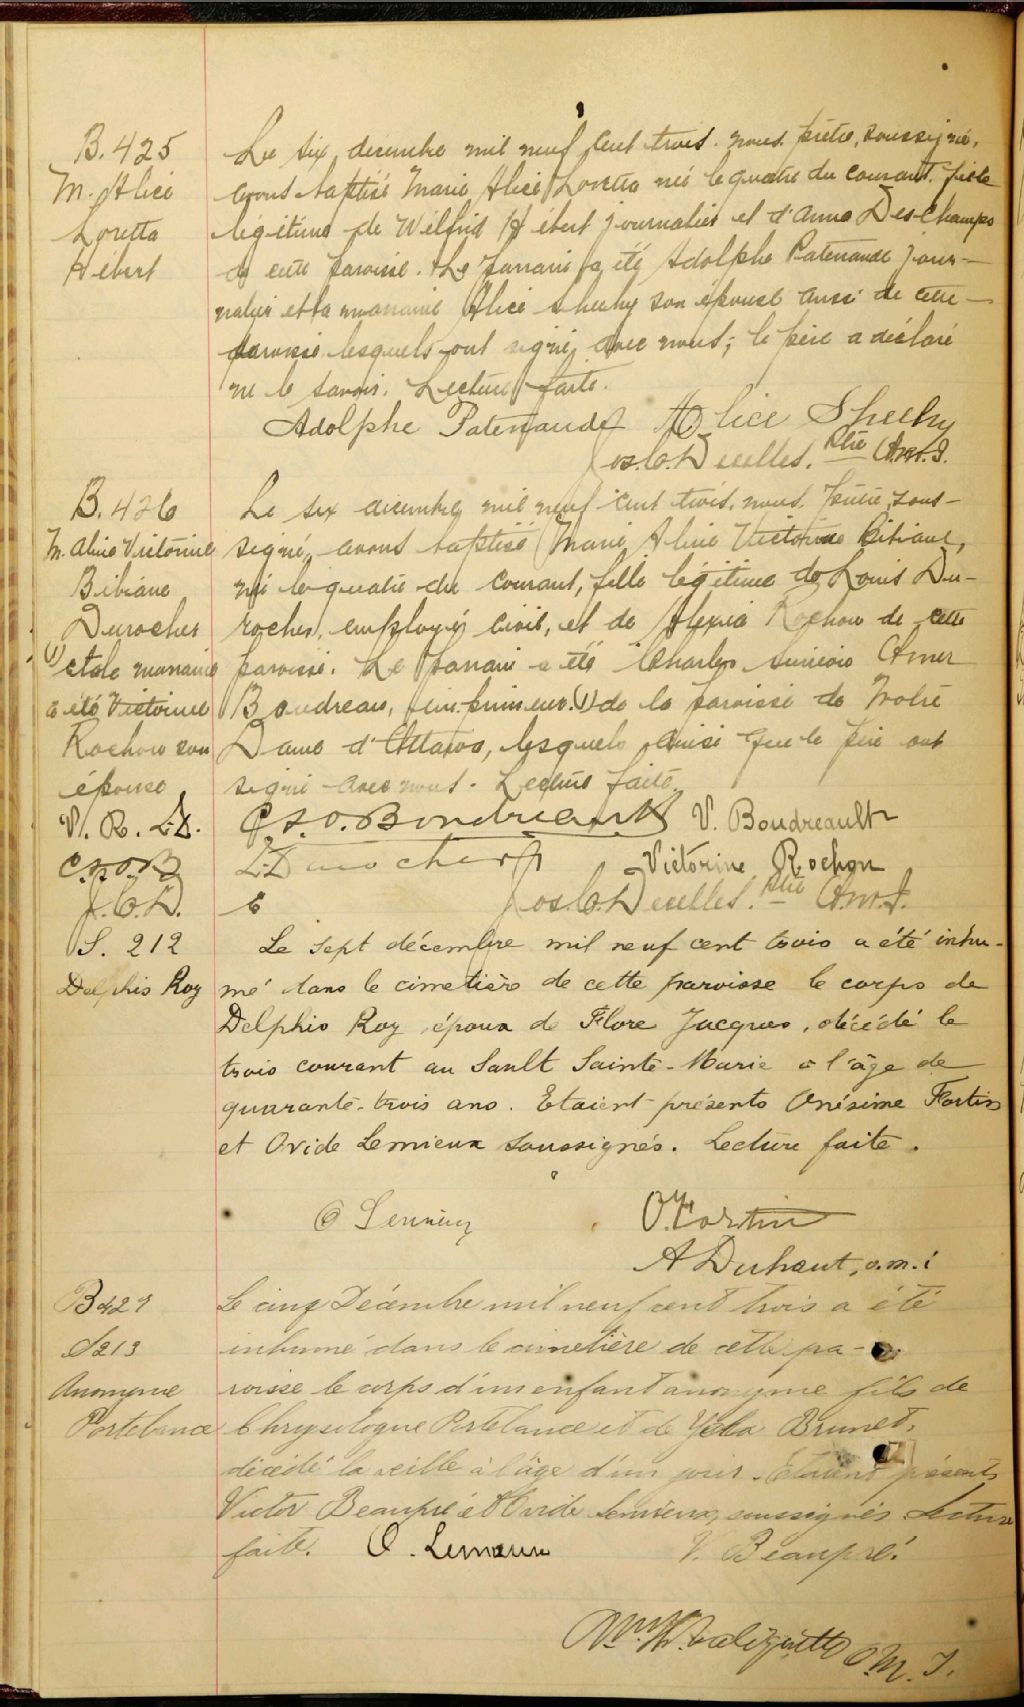 B. 425
M. Alice
Loretta
Hébert
Le six decembre mil neuf cent trois. nous prêtre, soussigné,
avons baptisé Marie Alice Loretta née le quatre du courant fille
légitime de Wilfrid Hébert journalier et d'Anna Des-Champs
de cette paroisse. Le parrain a été Adolphe Patenaude jour-
nalier et la marraine Alice Sheehy son épouse aussi de cette
paroisse lesquels ont signé avec nous; le père a déclaré
ne le savoir. Lecture faite.
Adolphe Patenaude Alice Sheehy
Jos. C. Decelles. Ptre O.M.I.
B. 426
M. Aline Victorine
Bibiane
Durocher
(1) et la marraine
a été Victorine
Rochon son
épouse
V. R. L.D.
C.S.O.B
J.C.D.
Le six decembre mil neuf cent trois. nous prêtre, sous-
signé, avons baptisé Marie Aline Victorine Bibiane,
née le quatre du courant, fille légitime de Louis Du-
rocher, employé civil, et de Alexia Rochon de cette
paroisse. Le parrain a été Charles Simeon Omer
Boudreau, imprimeur (1) de la paroisse de Notre
Dame d'Ottawa, lesquels ainsi que le père ont
signé avec nous. Lecture faite.
C.S.O. Boudreault V. Boudreault
L. Durocher Victorine Rochon
Jos. C. Decelles. Ptre O.M.I.
S. 212
Delphis Roy
Le sept décembre mil neuf cent trois a été inhu-
mé dans le cimetière de cette paroisse le corps de
Delphis Roy époux de Flore Jacques, décédé le
trois courant au Sault Sainte-Marie à l'âge de
quarante-trois ans. Etaient présents Onésime Fortin
et Ovide Lemieux soussignés. Lecture faite.
O Lemieux O. Fortin
A Duhaut, o.m.i
B 427
S 213
Anonyme
Portelance
Le cinq Décembre mil neuf cent trois a été
inhumé dans le cimetière de cette pa-
roisse le corps d'un enfant anonyme fils de
Chrysologue Portelance et de Brunet,
décédé la veille à l'âge d'un jour. Etaient présents
Victor Beaupré et Ovide Lemieux, soussignés Lecture
faite. O. Lemieux V. Beaupré.
O M. I.